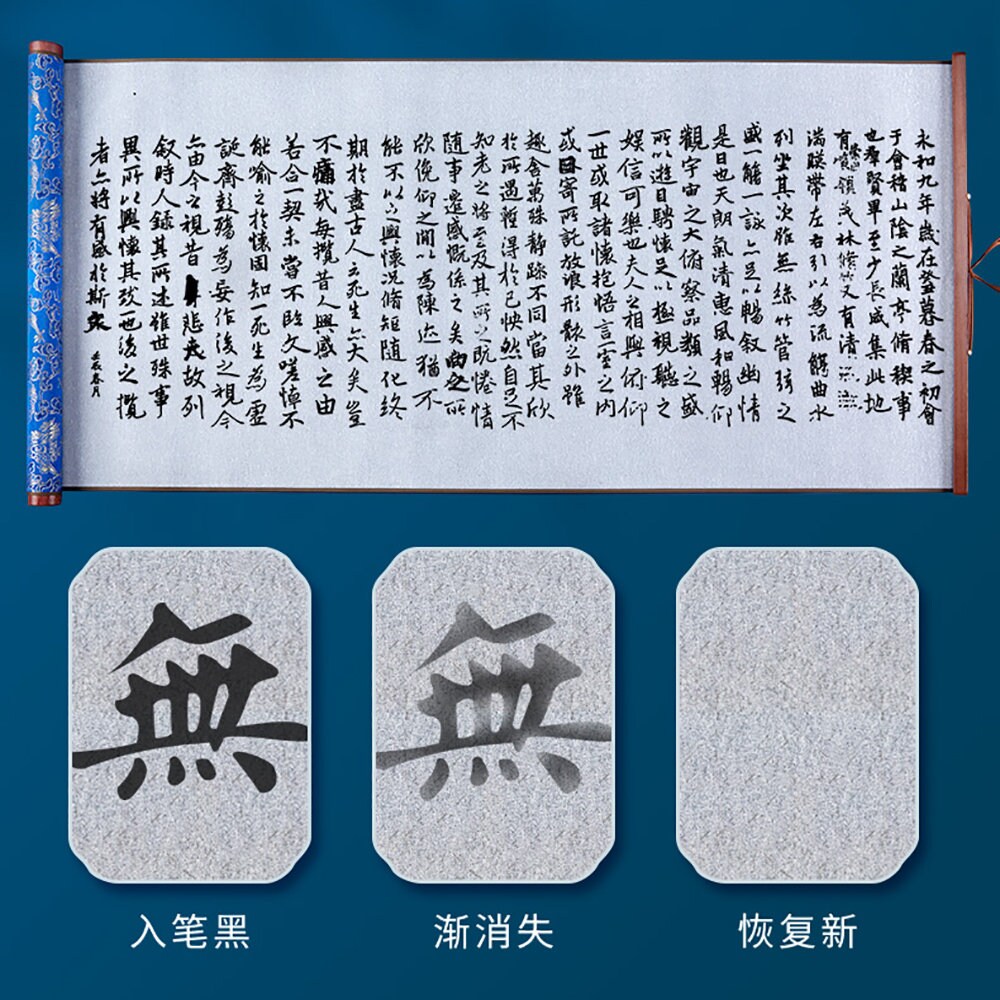 永和九年歲在癸暮春之初會
于會稽山陰之蘭亭脩稧事
也羣賢畢至少長咸集此地
有領茂林脩竹又有清
湍暎帶左右引以為流觴曲水
列坐其次雖無絲竹管弦之
盛一觴一詠亦足以暢叙幽情
是日也天朗氣清惠風和暢仰
觀宇宙之大俯察品類之盛
所以遊目騁懷足以極視聽之
娛信可樂也夫人之相與俯仰
一世或取諸懷抱悟言室之內
或因寄所託放浪形骸之外雖
趣舍萬殊靜躁不同當其欣
於所遇暫得於己怏然自足不
知老之將至及其所之既惓情
隨事遷感慨係之矣向之所
欣俛仰之閒以為陳迹猶不
能不以之興懷況脩短隨化終
期於盡古人云死生亦大矣豈
不痛哉每攬昔人興感之由
若合一契未嘗不臨文嗟悼不
能喻之於懷固知一死生為虛
誕齊彭殤為妄作後之視今
亦由今之視昔悲夫故列
叙時人錄其所述雖世殊事
異所以興懷其致一也後之攬
者亦將有感於斯文
無
無
入笔黑
渐消失
恢复新